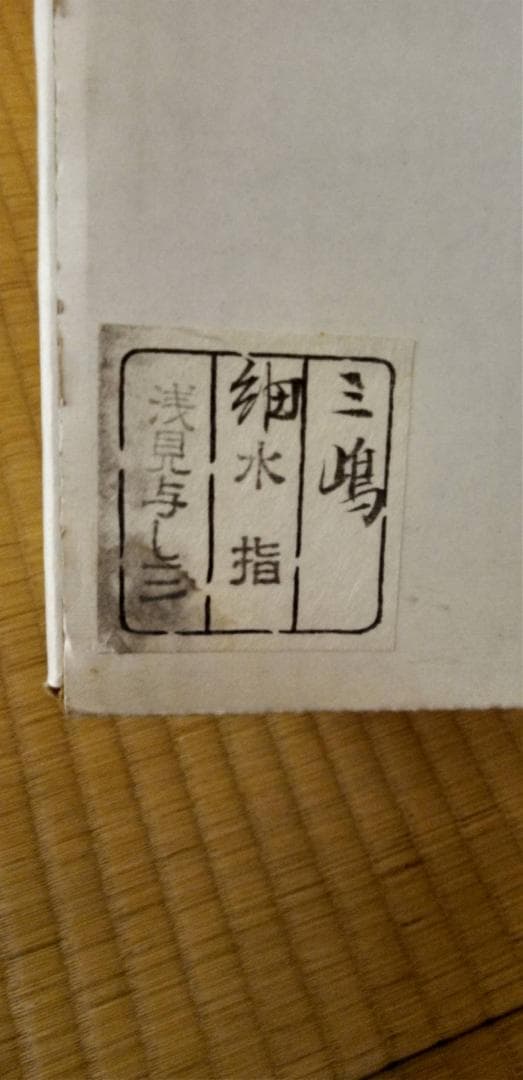 三嶋
細水指
浅見与し三